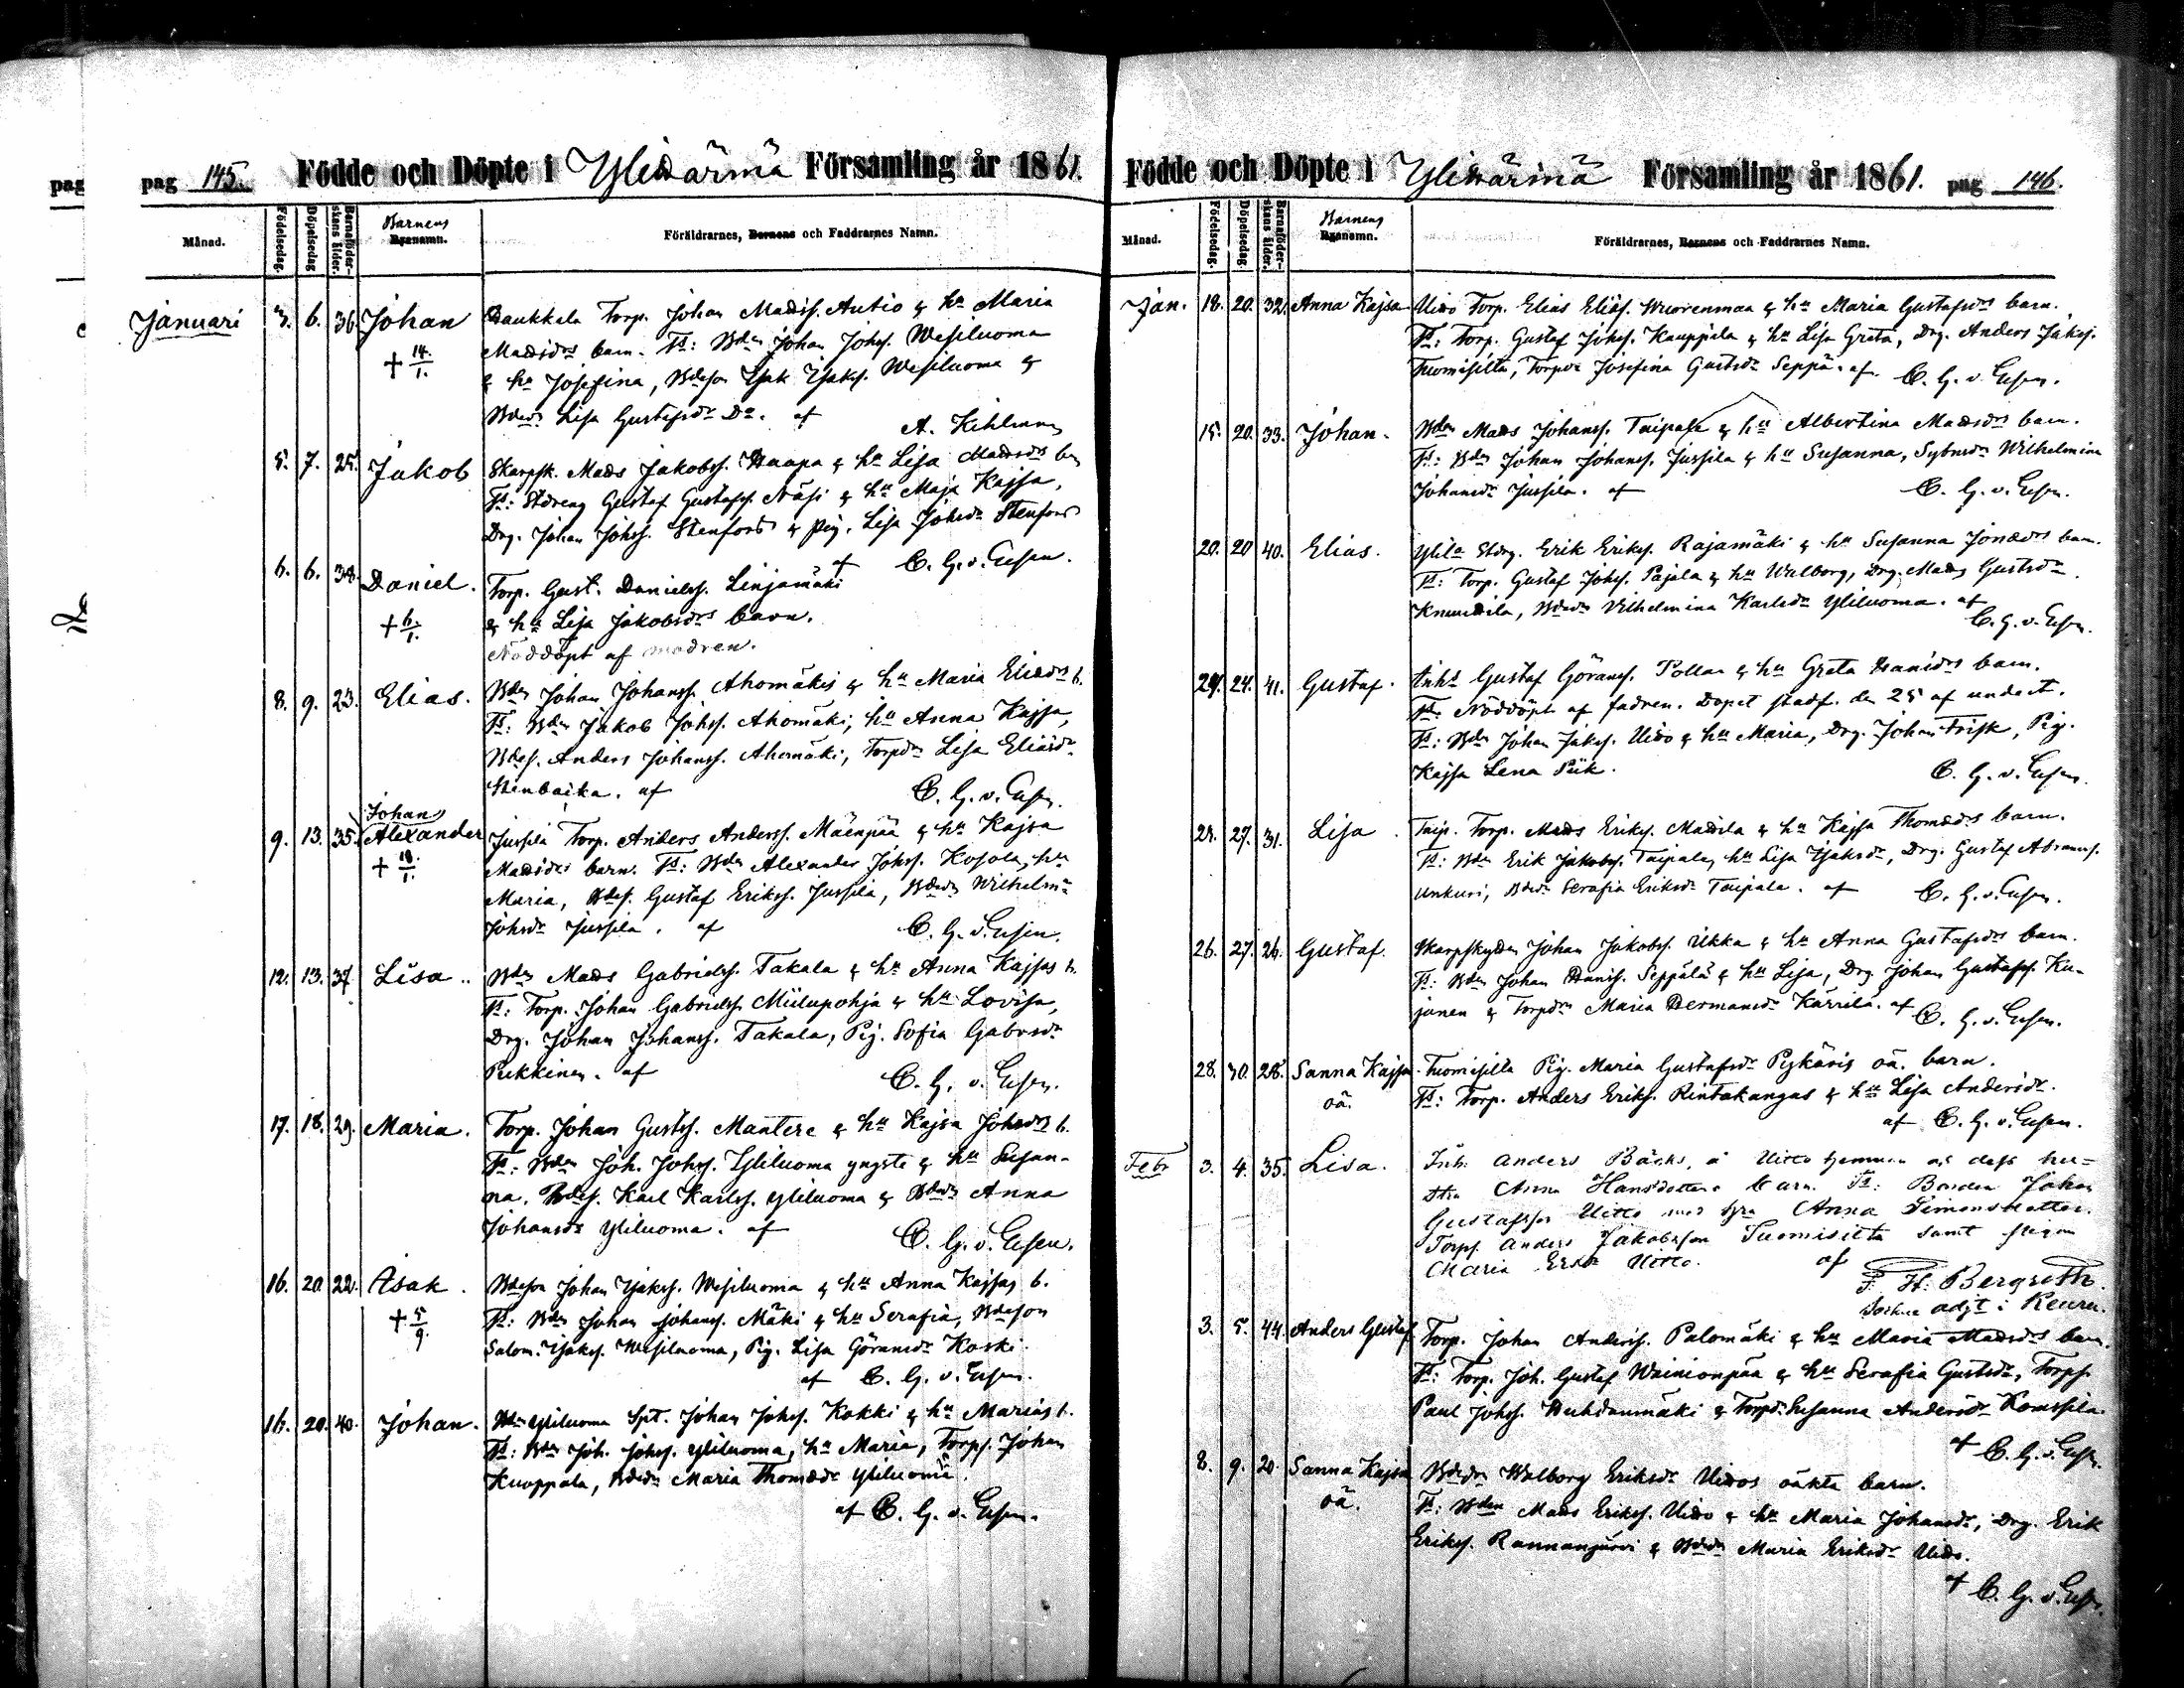 pag 145. Födde och Döpte i Ylihärmä Församling år 1861.
Månad. Födelsedag. Döpelsedag Barnaföderskans ålder. Barnens namn. Föräldrarnes, Barnens och Faddrarnes Namn.
Januari 3. 6. 36. Johan Haukkala Torp. Johan Madss. Autio & hu Maria
† 14/1. Madsdrs barn. Fs: Bden Johan Johss. Wesiluoma
& hu Josefina, Bdeson Isak Isaks. Wesiluoma &
Bdedr Lisa Gustafsdr Do. af A. Kihlman
5. 7. 25. Jakob Skarpsk. Mads Jakobss. Haapa & hu Lisa Madsdrs bn
Fs: Stdreng Gustaf Gustafss. Näsi & hu Maja Kajsa,
Drg. Johan Johss. Stenfors & pig. Lisa Johsdr Stenfors
af C. G. v. Essen.
6. 6. 38. Daniel. Torp. Gust. Danielss. Linjamäki
† 6/1. & hu Lisa Jakobsdrs barn.
Nöddöpt af modren.
8. 9. 23. Elias. Bden Johan Johanss. Ahomäkis & hu Maria Eliædrs b.
Fs: Bden Jakob Johss. Ahomäki, hu Anna Kajsa,
Bdes. Anders Johanss. Ahomäki, Torpdr Lisa Eliasdr
Stenbacka. af C. G. v. Essen.
9. 13. 35. Johan Alexander Jussila Torp. Anders Anderss. Mäenpää & hu Kajsa
† 18/1. Madsdrs barn. Fs: Bden Alexander Johss. Kosola, hu
Maria, Bdes. Gustaf Erikss. Jussila, Bdedr Wilhelma
Johsdr Jussila. af C. G. v. Essen.
12. 13. 37. Lisa.. Bden Mads Gabrielss. Takala & hu Anna Kajsas b.
Fs: Torp. Johan Gabrielss. Miilupohja & hu Lovisa,
Drg. Johan Johanss. Takala, Pig. Sofia Gabrsdr
Pekkinen. af C. G. v. Essen.
17. 18. 29. Maria. Torp. Johan Gustss. Mantere & hu Kajsa Johsdrs b.
Fs: Bden Joh. Johss. Yliluoma yngste & hu Susan-
na. Bdes. Karl Karlss. Yliluoma & Bdedr Anna
Johansdr Yliluoma. af C. G. v. Essen.
16. 20. 22. Isak. Bdeson Johan Isakss. Wesiluoma & hu Anna Kajsas b.
† 5/9. Fs: Bden Johan Johanss. Mäki & hu Serafia, Bdeson
Salom. Isakss. Wesiluoma, Pig. Lisa Göransdr Koski.
af C. G. v. Essen.
16. 20. 40. Johan. Yliluoma Spt. Johan Johss. Kokki & hu Marias b.
Fs: Bden Joh. Johss. Yliluoma, hu Maria, Torps. Johan
Kuoppala, Bdedr Maria Thomædr Yliluoma.
af C. G. v. Essen.
Födde och Döpte i Ylihärmä Församling år 1861. pag 146.
Månad. Födelsedag. Döpelsedag Barnaföderskans ålder. Barnens namn. Föräldrarnes, Barnens och Faddrarnes Namn.
Jan. 18. 20. 32. Anna Kajsa Uitto Torp. Elias Eliass. Wuorenmaa & hu Maria Gustafsdrs barn.
Fs: Torp. Gustaf Johss. Kauppila & hu Lisa Greta, Drg. Anders Jakss.
Tuomisilta, Torpdr Josefina Gustsdr Seppä. af C. G. v. Essen.
15. 20. 33. Johan. Bden Mads Johanss. Taipale & hu Albertina Madsdrs barn.
Fs: Bden Johan Johanss. Jussila & hu Susanna, Wilhelmina
Johansdr Jussila. af C. G. v. Essen.
20. 20 40. Elias. Stdrg. Erik Erikss. Rajamäki & hu Susanna Jonædrs barn.
Fs: Torp. Gustaf Johss. Pajala & hu Walborg, Drg. Mads Gustsdr
Knuutila, Bdedr Vilhelmina Karlsdr Yliluoma. af C. G. v. Essen.
24. 24. 41. Gustaf. Inhs Gustaf Göranss. Pollar & hu Greta barn.
Nöddöpt af fadren. Dopet stadf. den 25 af undert.
Fs: Bden Johan Jakss. Uitto & hu Maria, Drg. Johan Frisk, Pig.
Kajsa Lena Piik. C. G. v. Essen.
25. 27. 31. Lisa. Taip. Torp. Mads Erikss. Mattila & hu Kajsa Thomædrs barn.
Fs: Bden Erik Jakobss. Taipale, hu Lisa Isaksdr, Drg. Gustaf Abramss.
Unkuri, Bdedr Serafia Eriksdr Taipale. af C. G. v. Essen.
26. 27. 26. Gustaf. Skarpskytten Johan Jakobss. Ukka & hu Anna Gustafsdrs barn.
Fs: Bden Johan Hanss. Seppälä & hu Lisa, Drg. Johan Gustafss. Ku-
janen & Torpdr Maria Hermansdr Kärrilä. af C. G. v. Essen.
28. 30. 28. Sanna Kajsa Tuomisilta Pig. Maria Gustafsdr Pyhäris oä. barn.
oä. Fs: Torp. Anders Erikss. Rintakangas & hu Lisa Andersdr.
af C. G. v. Essen.
Febr 3. 4. 35. Lisa. Inh. Anders Bäcks, å Uitto hemman och dess hu-
stru Anna Hansdotters barn. Fs: Bonden Johan
Gustafsson Uitto med hru Anna Simonsdotter.
Torps. Anders Jakobsson Tuomisilta samt pigan
Maria Uitto. af
F. H. Bergroth.
adjt i Keuru.
3. 5. 44. Anders Gustaf Torp. Johan Anderss. Palomäki & hu Maria Madsdrs barn.
Fs: Torp. Joh. Gustaf Wainionpää & hu Serafia Gustsdr, Torps.
Paul Johss. Huhdanmäki & Torpdr Susanna Andersdr Kanssila.
af C. G. v. Essen.
8. 9. 20. Sanna Kajsa Bdedr Walborg Eriksdr Uittos oäkta barn.
oä. Fs: Bden Mads Erikss. Uitto & hu Maria Johansdr, Drg. Erik
Erikss. Rannanjärvi & Bdedr Maria Eriksdr Uitto.
af C. G. v. Essen.